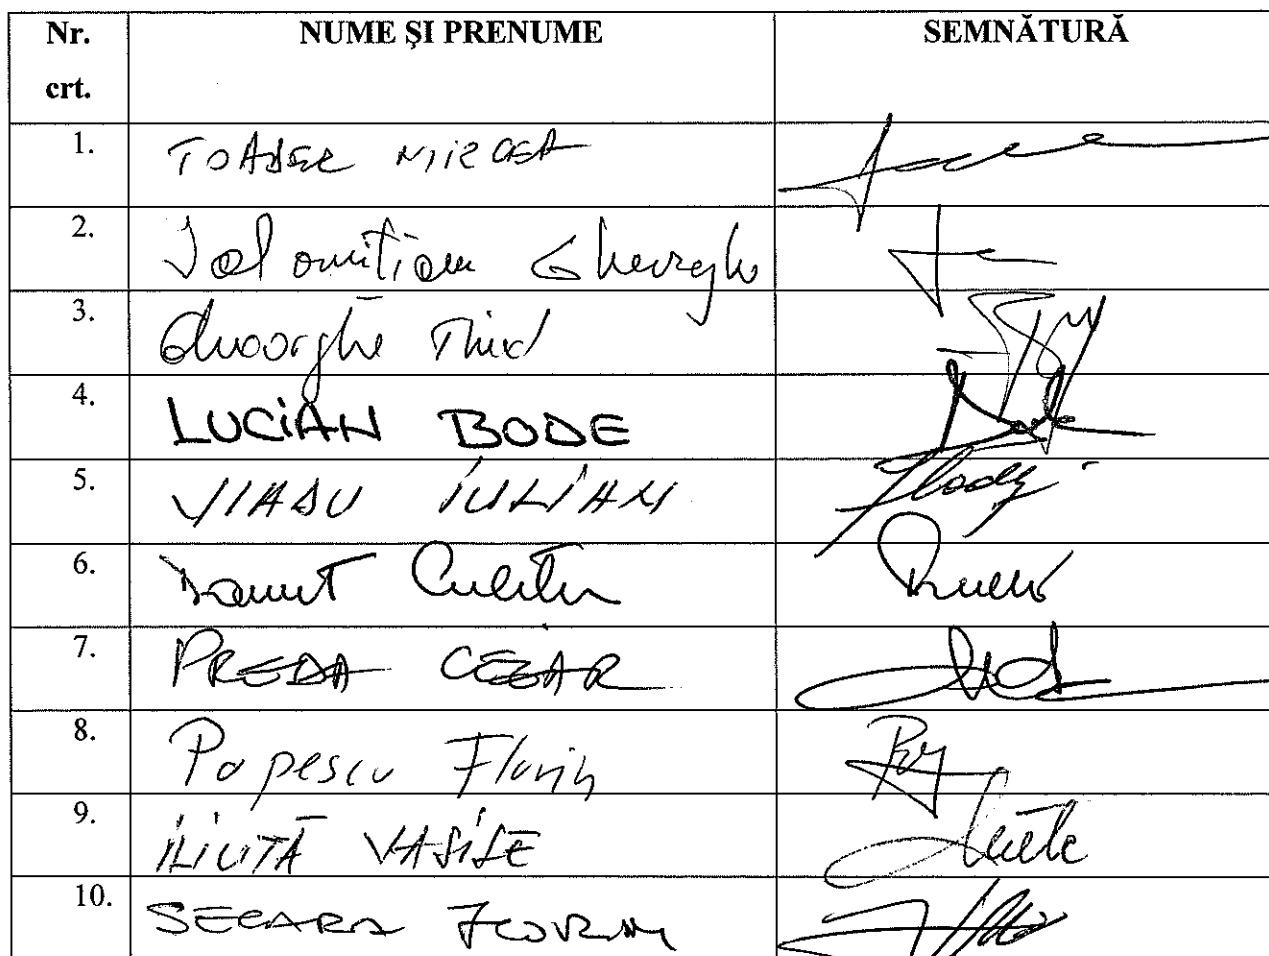 Nr. crt. NUME ŞI PRENUME SEMNĂTURĂ
1. TOADER MIRCEA
2. Ialomitianu Gheorghe
3. Gheorghe Tinel
4. LUCIAN BODE
5. VLADU IULIAN
6. Danut Culetu
7. PREDA CEZAR
8. Popescu Florin
9. ILIUTĂ VASILE
10. SECARA FLORIN